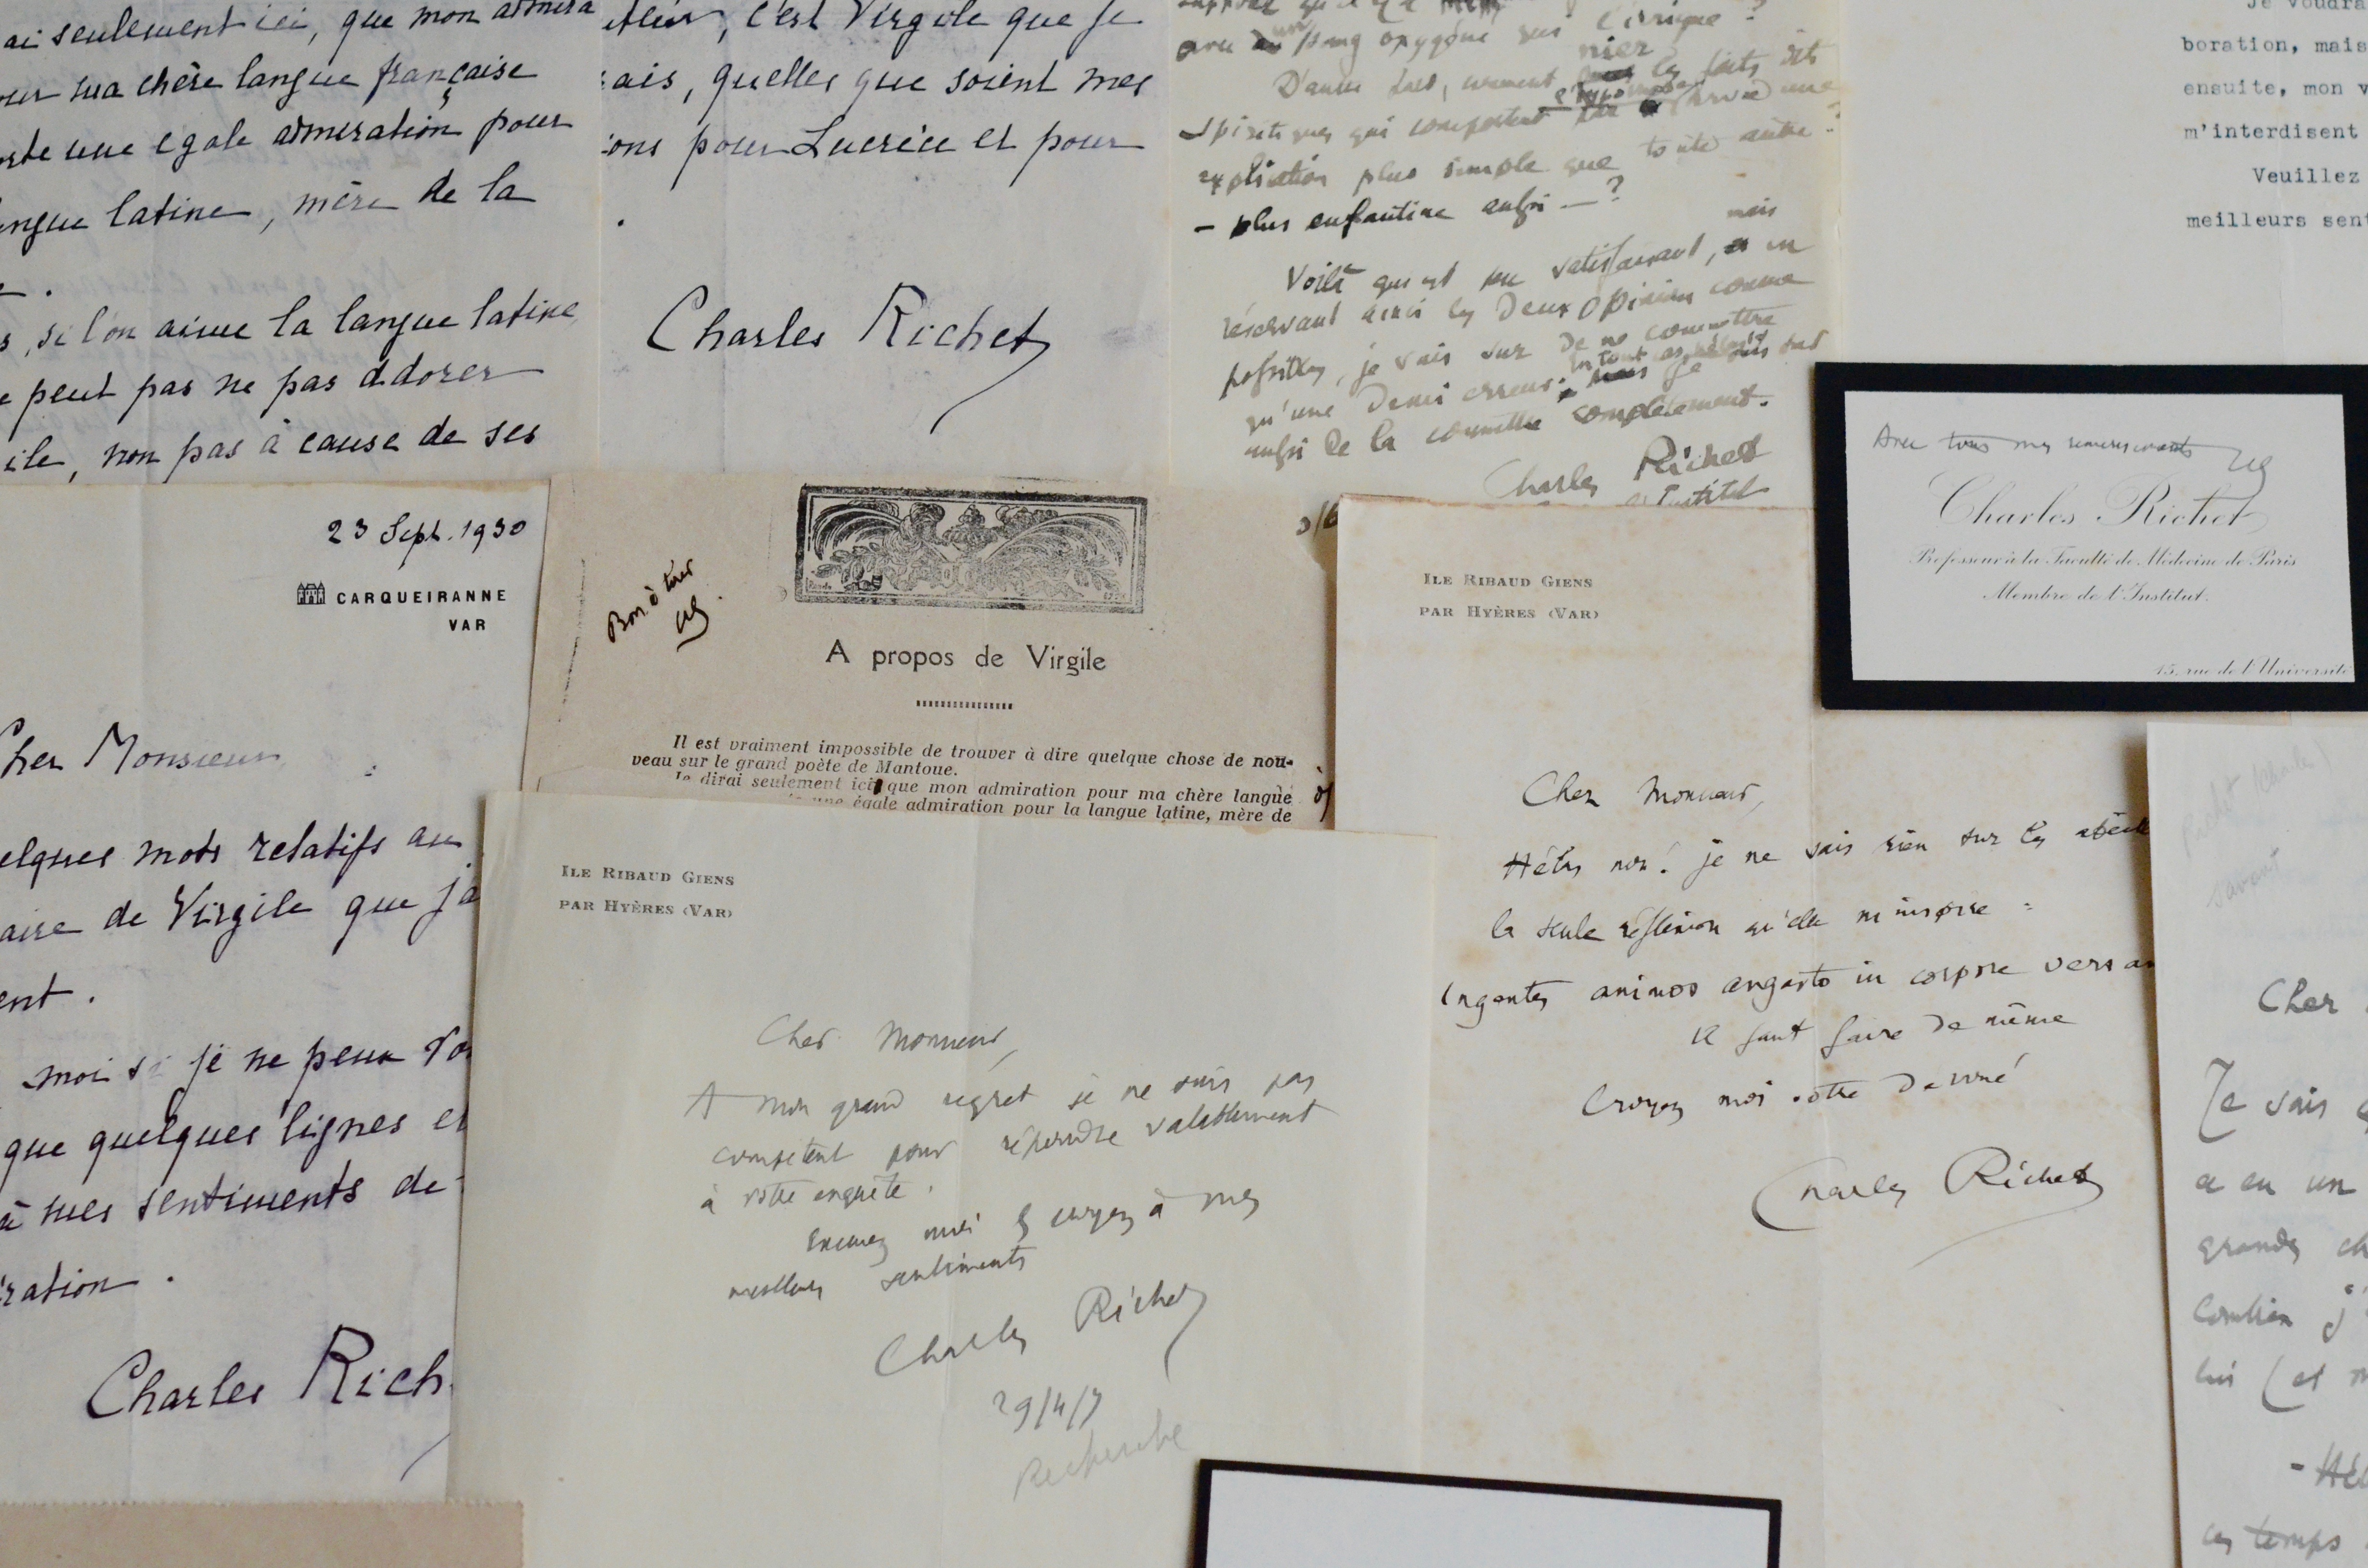 ai seulement ici, que mon admira
our ma chère langue française
orte une égale admiration pour
angue latine, mère de la
s, si l'on aime la langue latine
e peut pas ne pas adorer
ile, non pas à cause de ses
c'est Virgile que je
ais, quelles que soient mes
ions pour Lucrèce et pour
.
Charles Richet
avec un sang oxygéné
nier
D'autre part, comment les faits dits
spiritiques qui comportent
explication plus simple que toute autre
- plus enfantine aussi - ?
Voilà qui est peu satisfaisant, mais en
réservant ainsi les deux opinions comme
possibles, je suis sûr de ne commettre
qu'une demi erreur. je suis sûr
aussi de la commettre complètement.
Charles Richet
Je voudra
boration, mais
ensuite, mon v
m'interdisent
Veuillez
meilleurs sent
23 Sept. 1930
CARQUEIRANNE
VAR
Cher Monsieur
elques mots relatifs au
aire de Virgile que j'a
ent.
moi si je ne peux
que quelques lignes et
à mes sentiments de
ration.
Charles Rich
Bon à tirer
A propos de Virgile
Il est vraiment impossible de trouver à dire quelque chose de nou-
veau sur le grand poète de Mantoue.
Je dirai seulement ici que mon admiration pour ma chère langue
une égale admiration pour la langue latine, mère de
ILE RIBAUD GIENS
PAR HYÈRES (VAR)
Cher Monsieur,
Hélas non! je ne sais rien sur les
la seule réflexion qu'elle m'inspire :
Ingentes animos angusto in corpore versa
Il faut faire de même
Croyez moi votre dévoué
Charles Richet
Avec tous mes remerciements
Charles Richet
Professeur à la Faculté de Médecine de Paris
Membre de l'Institut.
15, rue de l'Université
ILE RIBAUD GIENS
PAR HYÈRES (VAR)
Cher Monsieur,
A mon grand regret je ne suis pas
compétent pour répondre valablement
à votre enquête.
Excusez moi & croyez à mes
meilleurs sentiments
Charles Richet
29/4/
Recherche
Richet (Charles)
savant
Cher
Je sais
a eu un
grandes ch
Combien j'
lui (et
- Hé
ces temps